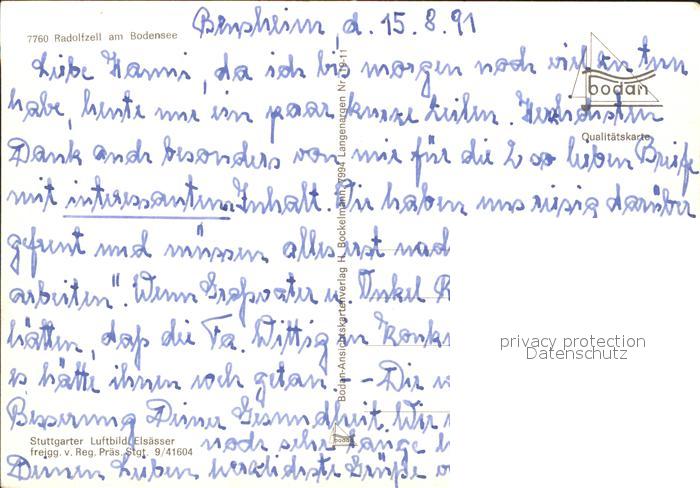 Bensheim, d. 15.8.91
7760 Radolfzell am Bodensee
Liebe Hanni, da ich bis morgen noch viel zu tun
habe, heute nur ein paar kurze Zeilen. Herzlichsten
bodan
Qualitätskarte
Dank auch besonders von mir für die 2 so lieben Briefe
mit interessantem Inhalt. Wir haben uns riesig darüber
gefreut und müssen alles erst nach
arbeiten". Wenn Großvater u. Onkel
hätten, daß die Fa. Wittig in
es hätte ihnen weh getan. - Dir
Besserung Deiner Gesundheit. Wir
noch sehr lange
Deinen Lieben herzlichste Grüße
Bodan-Ansichtskartenverlag H. Bockelmann, 7994 Langenargen Nr.
Stuttgarter Luftbild Elsässer
freigg. v. Reg. Präs. Stgt. 9/41604
bodan
privacy protection
Datenschutz